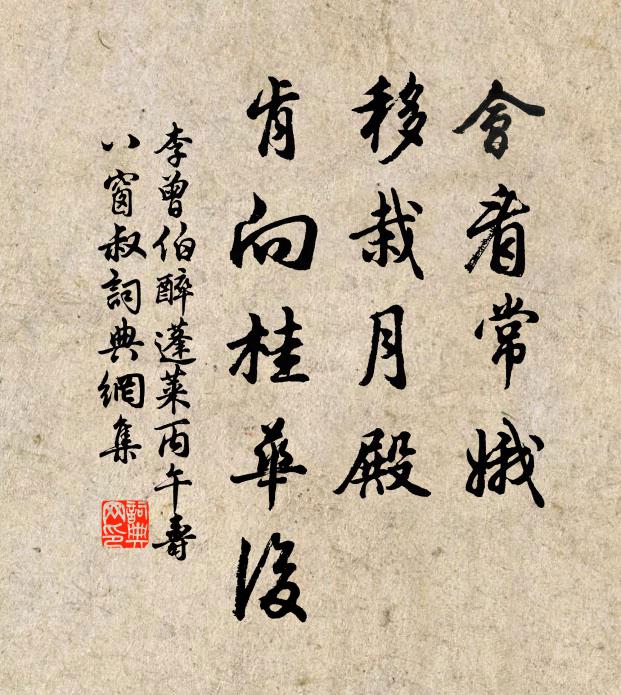 會看常娥
移栽月殿
肯向桂華後
李曾伯醉蓬萊丙午壽
八窗叔詞典網集
詞典網印